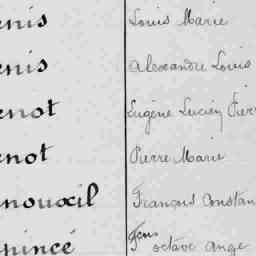 enis Louis Marie
enis Alexandre Louis
enot Eugène Lucien Pierr
enot Pierre Marie
nouxil François Constan
pincé Fçois octave ange